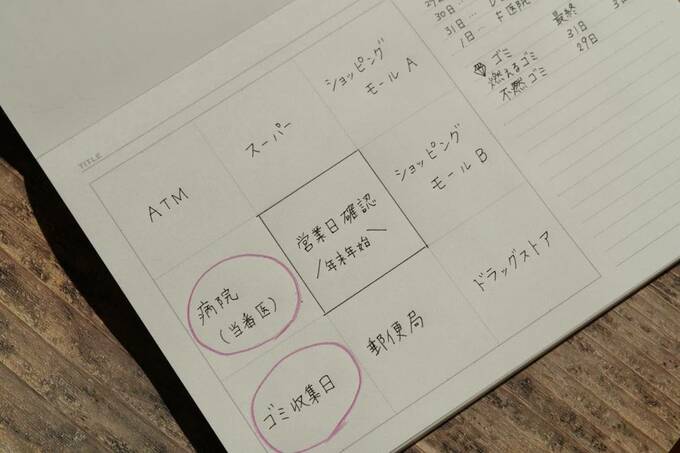 TITLE
ATM
スーパー
ショッピング
モール A
病院
(当番医)
営業日確認
/年末年始\
ショッピング
モール B
ゴミ収集日
郵便局
ドラッグストア
30日…
31日…
1日… F医院
ゴミ 最終
燃えるゴミ 31日
不燃ゴミ 29日